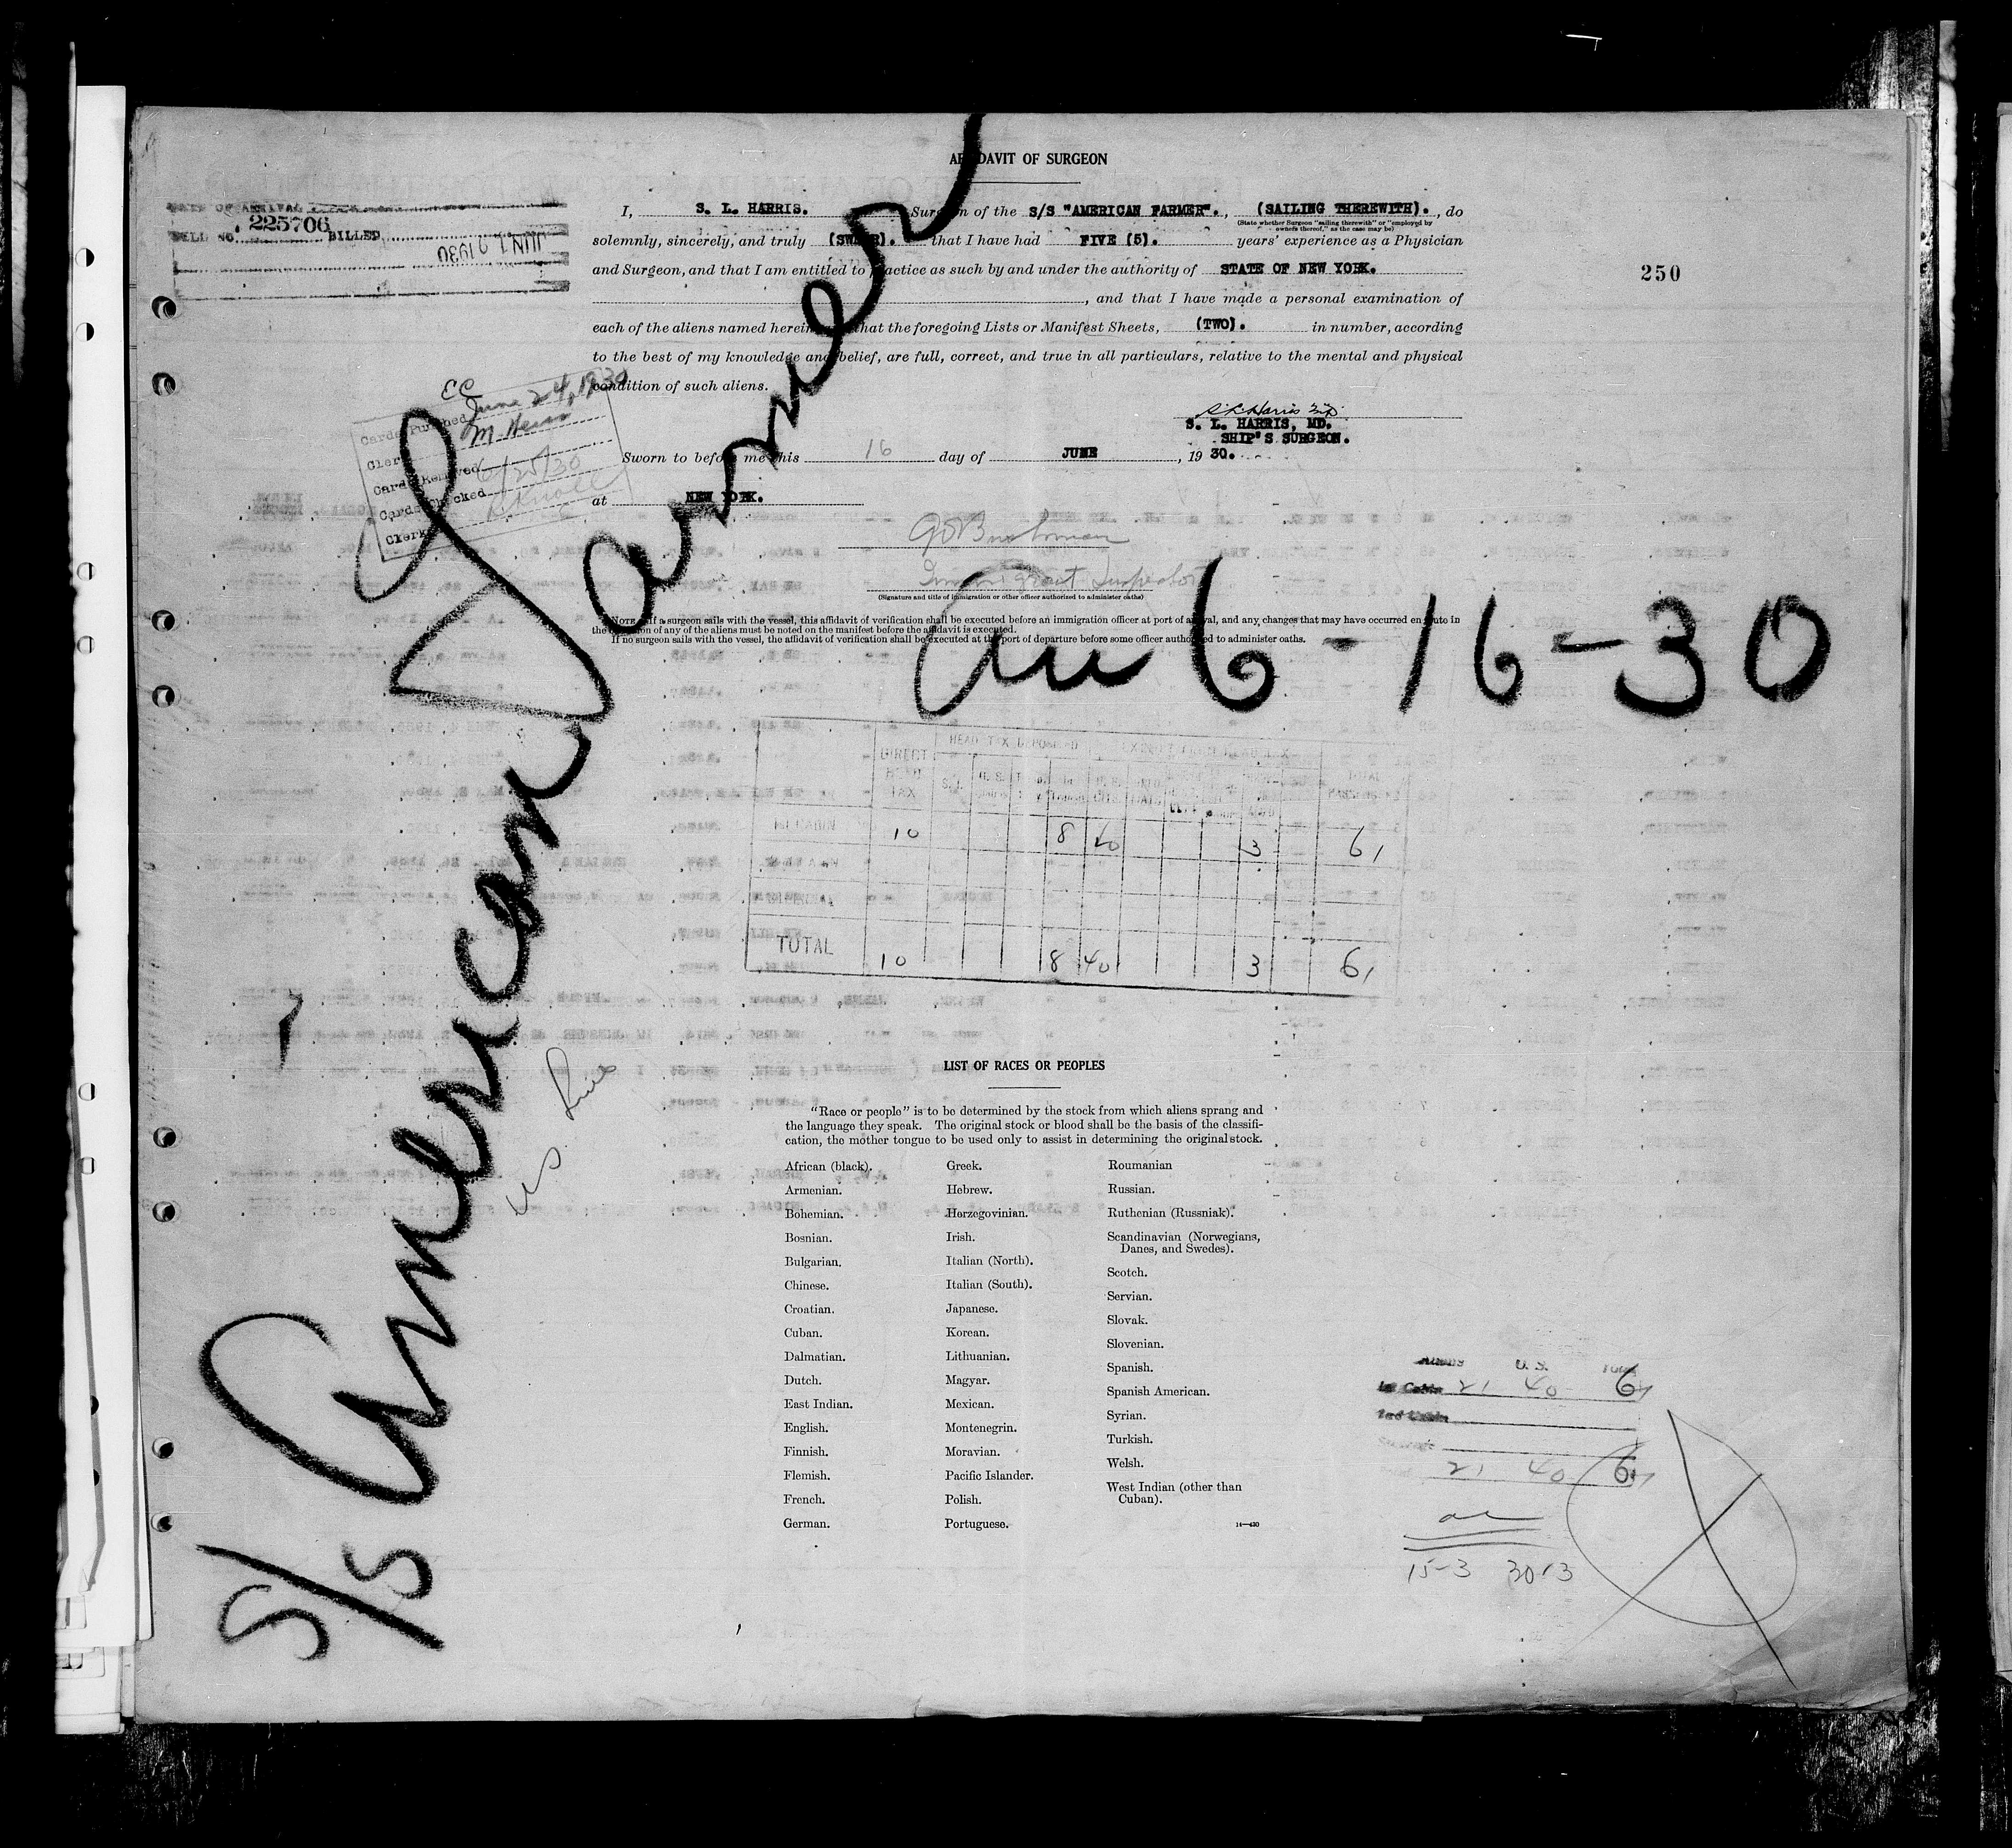 AFFIDAVIT OF SURGEON
I, S. L. HARRIS. Surgeon of the S/S "AMERICAN FARMER"., (SAILING THEREWITH)., do
(State whether Surgeon "sailing therewith" or "employed by
owners thereof," as the case may be)
solemnly, sincerely, and truly (SWEAR). that I have had FIVE (5). years' experience as a Physician
and Surgeon, and that I am entitled to practice as such by and under the authority of STATE OF NEW YORK.
, and that I have made a personal examination of
each of the aliens named herein, and that the foregoing Lists or Manifest Sheets, (TWO). in number, according
to the best of my knowledge and belief, are full, correct, and true in all particulars, relative to the mental and physical
condition of such aliens.
S. L. Harris MD
S. L. HARRIS, MD.
SHIP'S SURGEON.
Sworn to before me this 16 day of JUNE, 1930.
at NEW YORK.
Immigrant Inspector
(Signature and title of immigration or other officer authorized to administer oaths)
NOTE.—If a surgeon sails with the vessel, this affidavit of verification shall be executed before an immigration officer at port of arrival, and any changes that may have occurred en route in
the condition of any of the aliens must be noted on the manifest before the affidavit is executed.
If no surgeon sails with the vessel, the affidavit of verification shall be executed at the port of departure before some officer authorized to administer oaths.
250
DATE OF ARRIVAL
225706
BILL NO. BILLED
JUN 19 1930
EC
Cards Punched June 24, 1930
Clerk M. Heiss
Cards Removed
Cards Checked 6/25/30
Clerk
S/S American Farmer
Arr 6-16-30
U.S. Lines
DIRECT HEAD TAX
HEAD TAX DEPOSITED
TOTAL
1st CABIN 10 8 40 3 61
TOTAL 10 8 40 3 61
LIST OF RACES OR PEOPLES
"Race or people" is to be determined by the stock from which aliens sprang and
the language they speak. The original stock or blood shall be the basis of the classifi-
cation, the mother tongue to be used only to assist in determining the original stock.
African (black).
Armenian.
Bohemian.
Bosnian.
Bulgarian.
Chinese.
Croatian.
Cuban.
Dalmatian.
Dutch.
East Indian.
English.
Finnish.
Flemish.
French.
German.
Greek.
Hebrew.
Herzegovinian.
Irish.
Italian (North).
Italian (South).
Japanese.
Korean.
Lithuanian.
Magyar.
Mexican.
Montenegrin.
Moravian.
Pacific Islander.
Polish.
Portuguese.
Roumanian
Russian.
Ruthenian (Russniak).
Scandinavian (Norwegians,
Danes, and Swedes).
Scotch.
Servian.
Slovak.
Slovenian.
Spanish.
Spanish American.
Syrian.
Turkish.
Welsh.
West Indian (other than
Cuban).
14—430
Aliens U. S. Total
1st Cabin 21 40 61
2nd Cabin
21 40 61
15-3 30 13